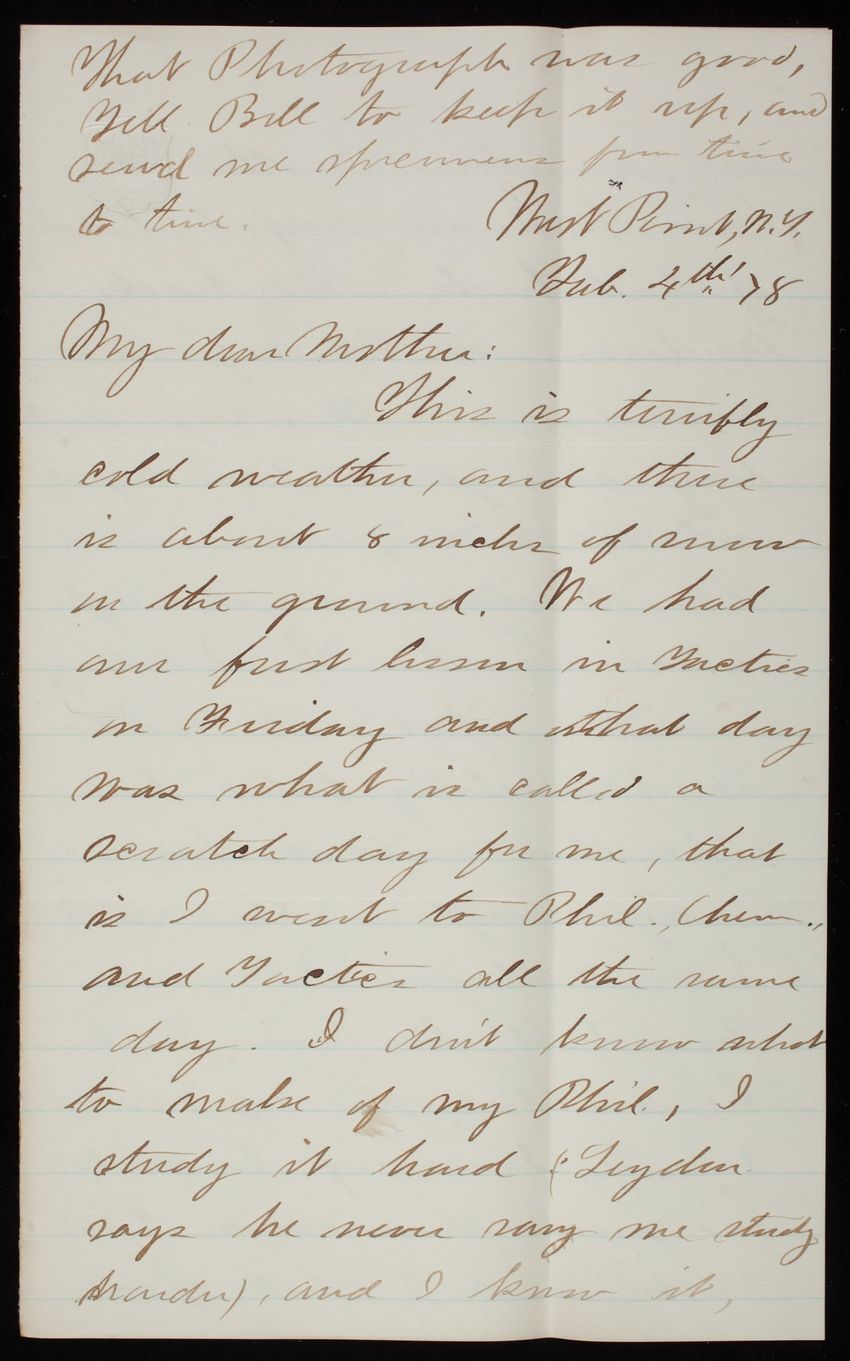 That Photograph was good,
Tell Bill to keep it up, and
send me specimens from time
to time.
West Point, N.Y.
Feb. 4th '78
My dear Mother:
This is terribly
cold weather, and there
is about 8 inches of snow
on the ground. We had
our first lesson in Tactics
on Friday and that day
was what is called a
scratch day for me, that
is I went to Phil., Chem.,
and Tactics all the same
day. I don't know what
to make of my Phil., I
study it hard (Leyden
says he never saw me study
harder), and I know it,